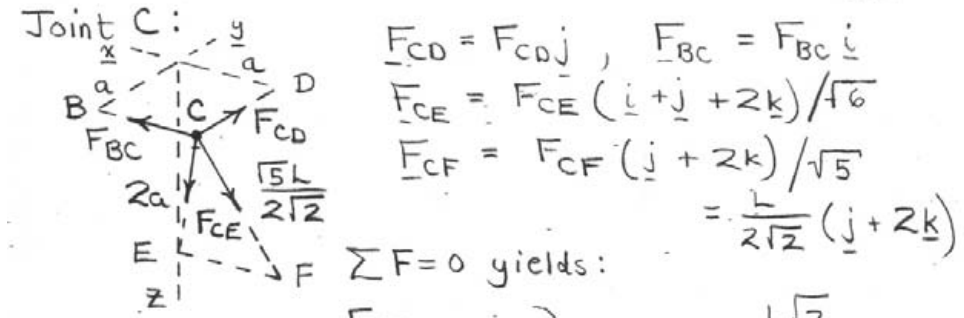 Joint C:
x y
a a
B D
C
F_BC F_CD
2a √5L/2√2
F_CE
E F
z
F_CD = F_CD j , F_BC = F_BC i
F_CE = F_CE (i + j + 2k)/√6
F_CF = F_CF (j + 2k)/√5
= L/2√2 (j + 2k)
ΣF=0 yields: